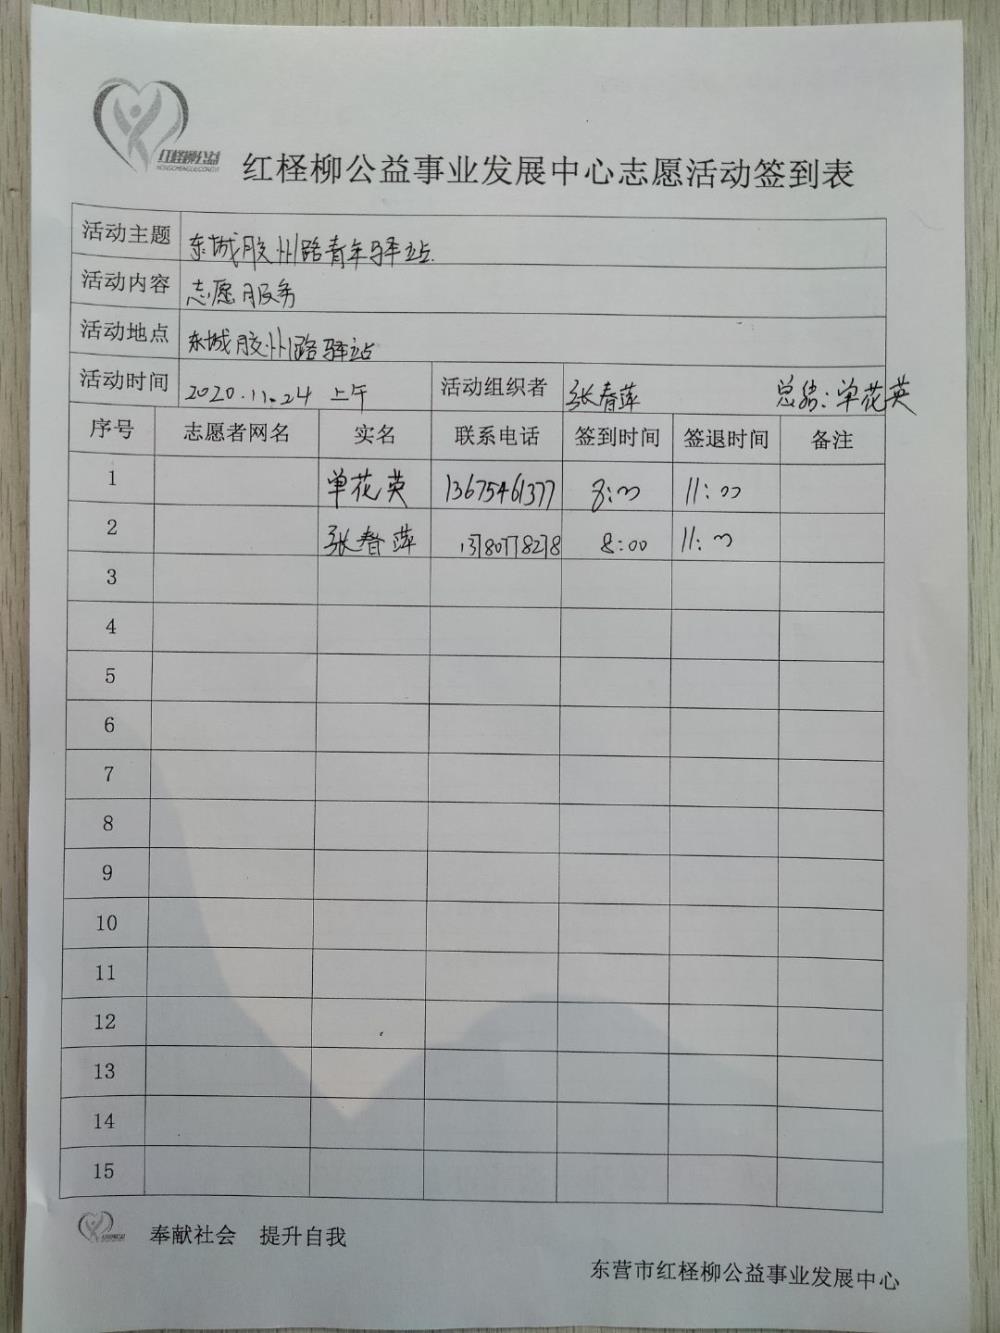 红柽柳公益
红柽柳公益事业发展中心志愿活动签到表
活动主题 东城胶州路青年驿站
活动内容 志愿服务
活动地点 东城胶州路驿站
活动时间 2020.11.24 上午 活动组织者 张春萍 总结：单花英
序号 志愿者网名 实名 联系电话 签到时间 签退时间 备注
1 单花英 13675461377 8:00 11:00
2 张春萍 13780778278 8:00 11:00
3
4
5
6
7
8
9
10
11
12
13
14
15
奉献社会 提升自我
东营市红柽柳公益事业发展中心